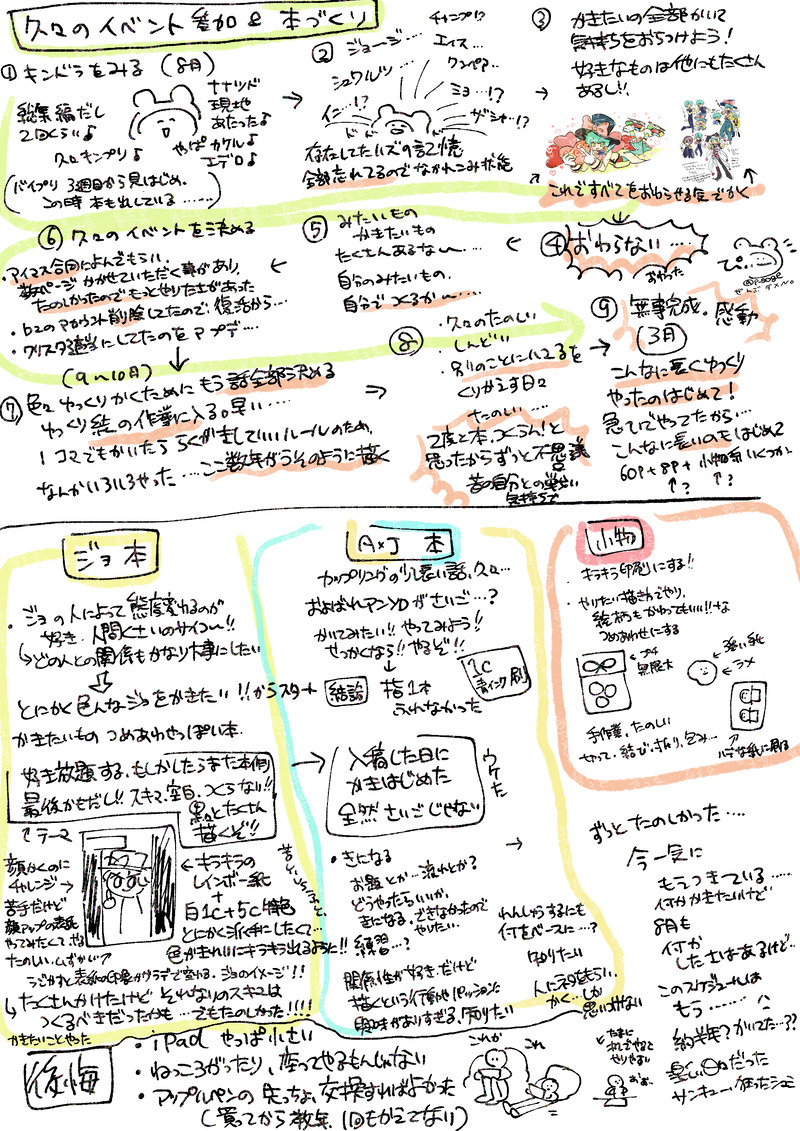 久々のイベント参加&本づくり
① キンプラをみる (8月)
総集編だし
2回くらい♪
久々キンプリ♪
ナナツド
現地
あたった♪
やっぱカケル♪
エデロ♪
この時 本も出している……
② ジョージ…
チャンプ!?
エイス…
シュワルツ…
ワンペア…
ミヨ…!?
ザシャ…!?
ドドド
全部忘れてるのでながれこみ放題
③ かきたいの全部かいて
気持ちをおちつけよう!
好きなものは他にもたくさん
あるし!!
これですべてをおわらせる気でかく
④ おわらない……
おわった
ぴ…
⑤ みたいもの
かきたいもの
たくさんあるな〜…
自分のみたいもの、
自分でつくるか〜……
⑥ 久々のイベントを決める
・アイマス合同によんでもらい、
数ページかかせていただく事があり、
たのしかったのでもっとやりたさがあった
のアカウント削除してたので復活から…
⑦ (9〜10月)
色々ゆっくりかくためにもう話全部決める
ゆっくり絵の作業に入る。早い……
1コマでもかいたららくがきしていいルールのため、
なんかいろいろやった……ここ数年がうそのように描く
⑧ ・久々のたのしい
・しんどい
・別のことにハマる を
くりかえす日々
たのしい……
2度と本、つくらん!と
思ったからずっと不思議
⑨ 無事完成。感動
(3月)
こんなに長くゆっくり
やったのはじめて!
急いでやってたから…
こんなに長いのもはじめて
60P+8P+小物系いくつか
↑? ↑?
ジョ本
・ジョの人によって態度変わるのが
好き、人間くさいのサイコ〜!!
↳どの人との関係もかなり大事にしたい
とにかく色んなジョをかきたい!!からスタート
かきたいもの つめあわせっぽい本
好き放題する、もしかしたらまた本側
最後かもだし!! スキマ、空白、つくらない!!
たくさん
描くぞ!!
テーマ
顔かくのに
チャレンジ→
苦手だけど
顔アップの表紙
やってみたくて、やる
たのしい、むずかしい
←キラキラの
レインボー紙
+
白1C+5C特色
とにかく派手にしたくて…
色がきれいにキラキラ出るように!!
↳たくさんかけたけど それなりのスキマは
つくるべきだったかも…でもたのしかった!!!!
かきたいことやった
A×J 本
カップリングの少し長い話、久々…
およばれアンソロがさいご…?
かいてみたい!! やってみよう!!
せっかくなら!! やるぞ!!
結論
指1本
ふれなかった
1C
青インク刷
入稿した日に
かきはじめた
全然さいごじゃない
ウケた
・きになる
お題とか…流れとか?
どうやったらいいか、
きになる、できなかったので
やりたい。
練習…?
関係性が好き、だけど
描くという行為やパッションに
興味がありすぎる、知りたい
れんしゅうするにも
何をベースに…?
知りたい
人にネタをもらい、
かく…しか
思いつかない
小物
・キラキラ印刷にする!!
・やりたい描き方でやり、
絵柄もかわってもいい!!な
つめあわせにする
←プチ
無限大
強い紙
←ラメ
手作業、たのしい
切って・結び・折り、包み…
ずっとたのしかった……
今一気に
もえつきている……
何かかきたいけど
8月も
何か
したさはあるけど…
このスケジュールは
もう……
約半年?かいてた…??
星い日々だった
サンキュー
後悔
・iPad やっぱ小さい
・ねっころがったり、座ってやるもんじゃない
・アップルペンの先っちょ、交換すればよかった
(買ってから数年、1回もかえてない)
これが
これ